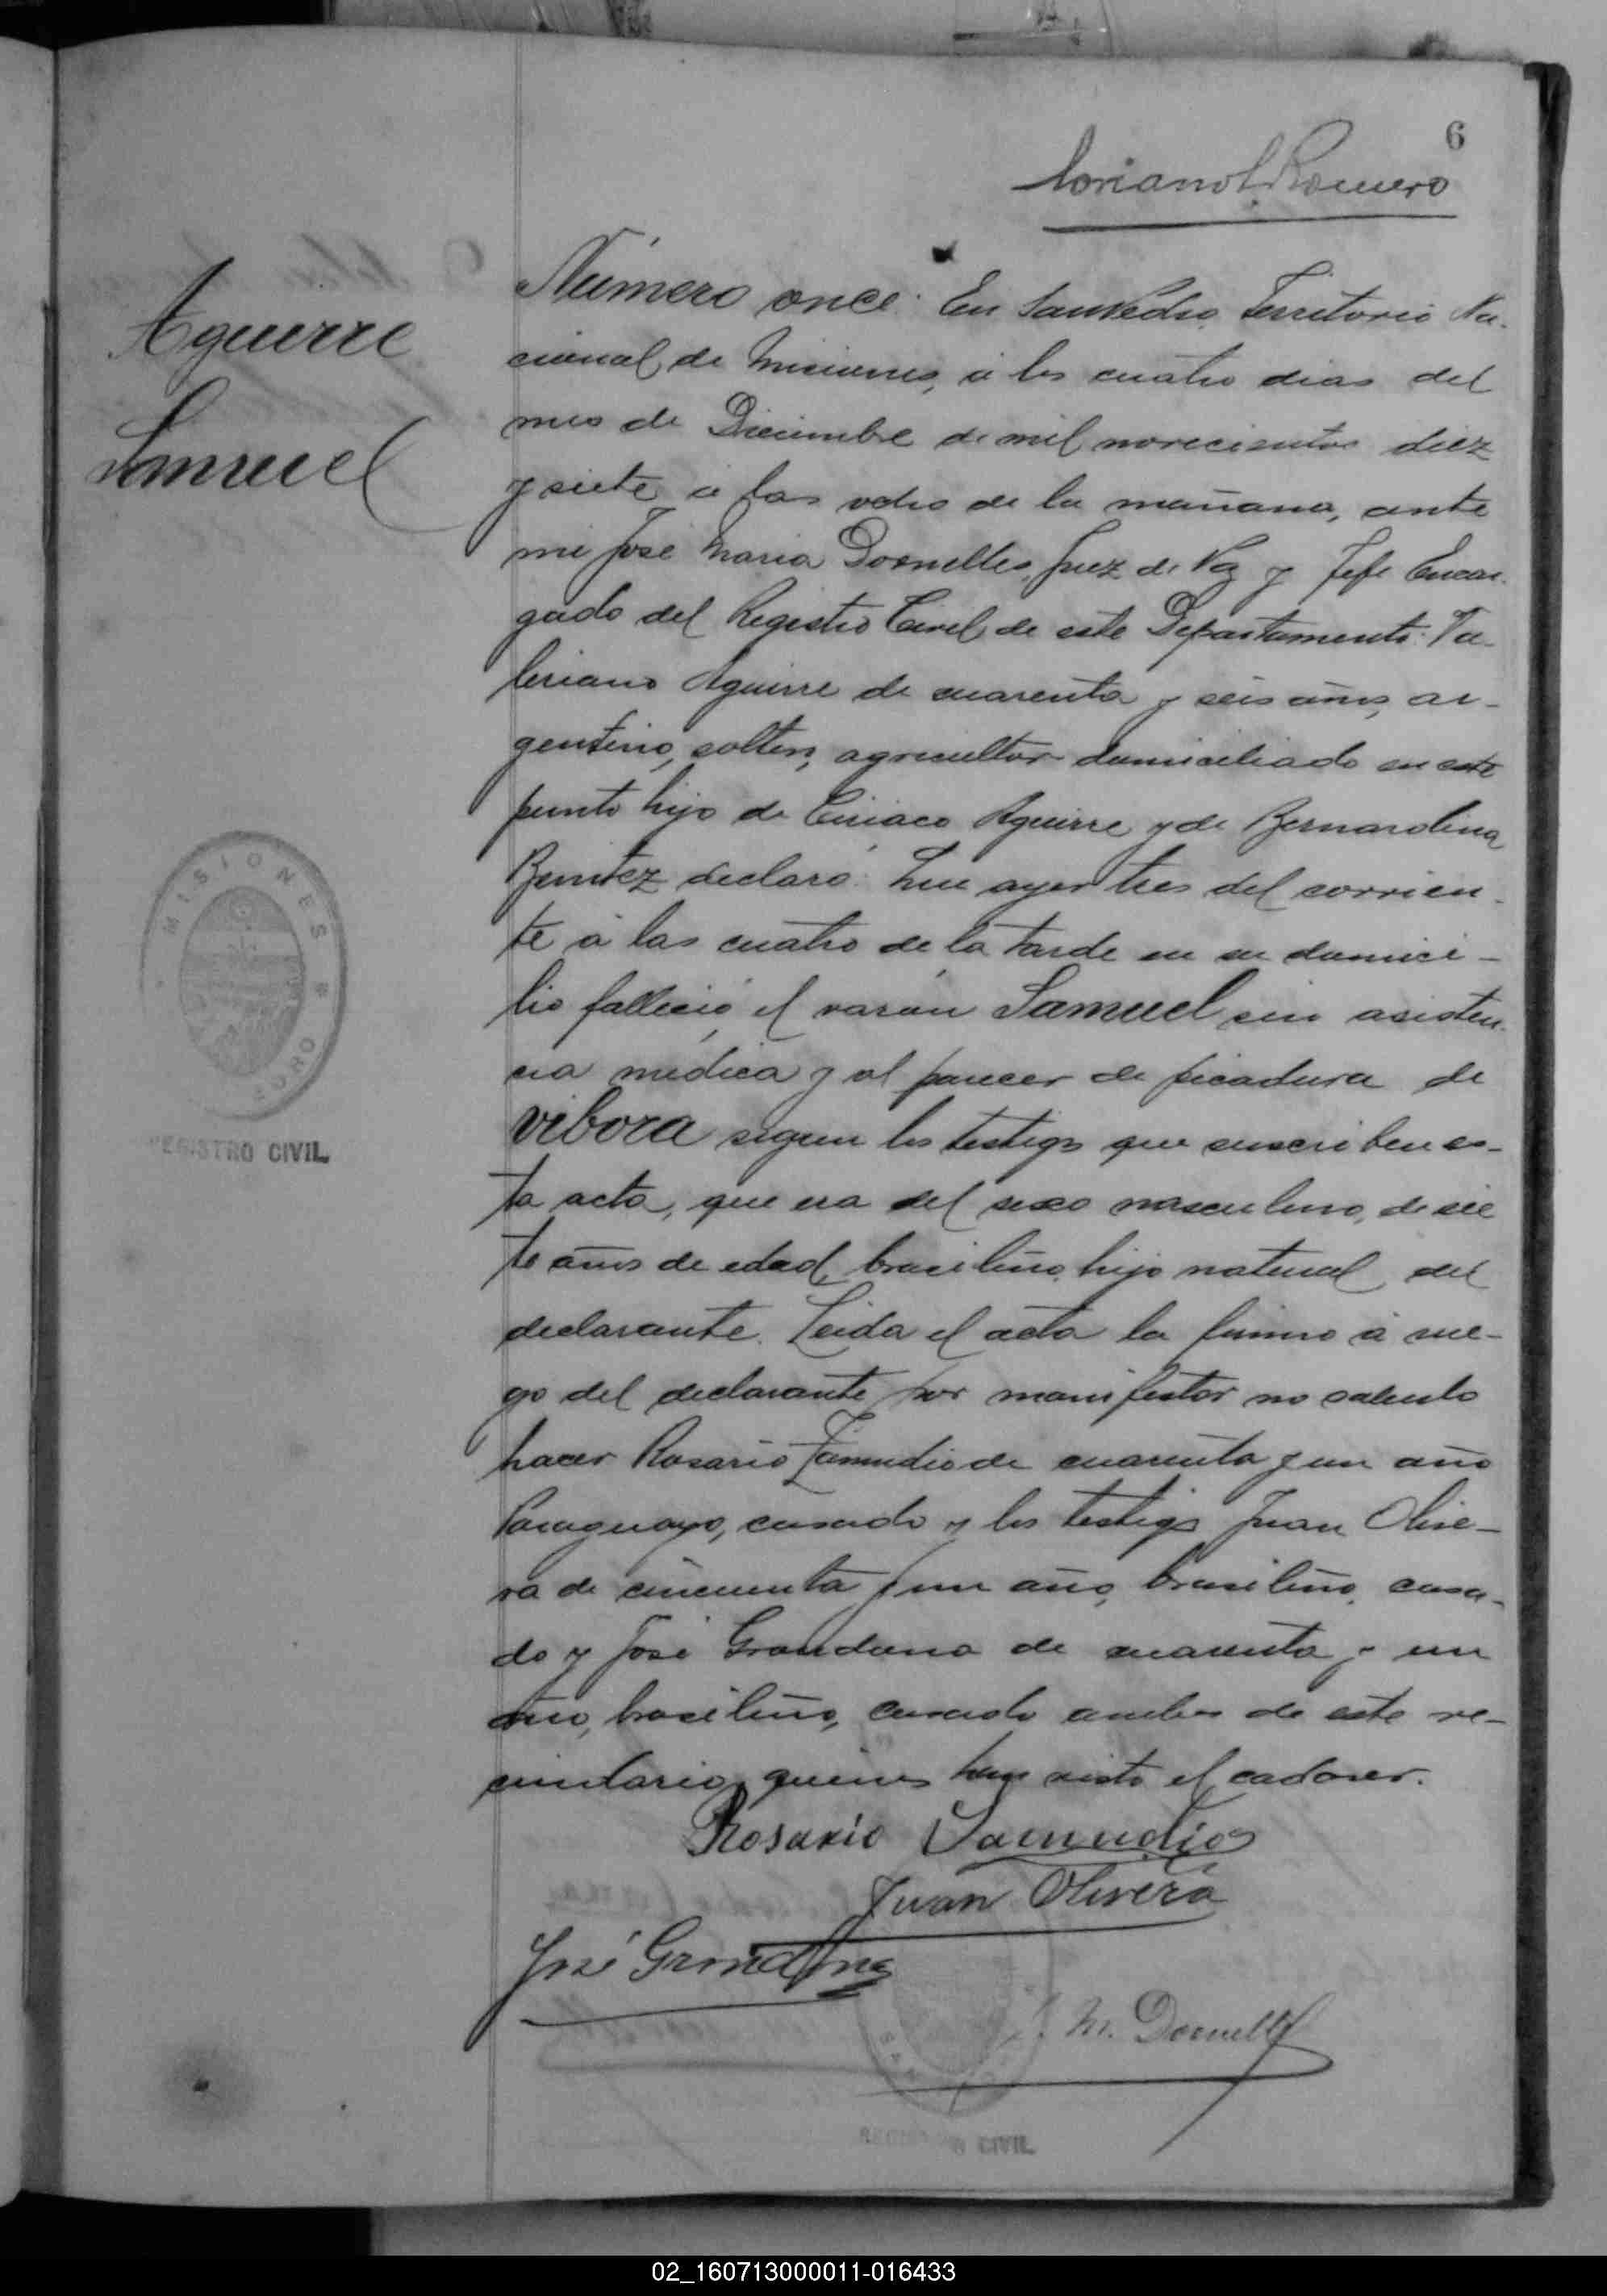 6
Soriano L. Romero
Aguirre
Samuel
Número once: En San Pedro, Territorio Na-
cional de Misiones, á los cuatro dias del
mes de Diciembre de mil novecientos diez
y siete á las ocho de la mañana, ante
mi José Maria Dornelles, Juez de Paz y Jefe Encar-
gado del Registro Civil de este Departamento: Va-
leriano Aguirre de cuarenta y seis años, ar-
gentino, soltero, agricultor domiciliado en este
punto hijo de Ciriaco Aguirre y de Bernardina
Benitez declaró: Que ayer tres del corrien-
te á las cuatro de la tarde en su domici-
lio falleció el varón Samuel sin asisten-
cia medica y al parecer de picadura de
vibora segun los testigos que suscriben es-
ta acta, que era del sexo masculino, de sie
te años de edad, brasileño, hijo natural del
declarante. Leida el acta la firmo á rue-
go del declarante por manifestar no saberlo
hacer Rosario Zamudio de cuarenta y un año
Paraguayo, casado y los testigos Juan Olive-
ra de cincuenta y un año, brasileño, casa-
do y José Grandona de cuarenta y un
año, brasileño, casado ambos de este ve-
cindario, quienes han visto el cadaver.
Rosario Samudio
Juan Olivera
José Grandona
J. M. Dornelles
MISIONES
REGISTRO CIVIL
REGISTRO CIVIL
02_160713000011-016433